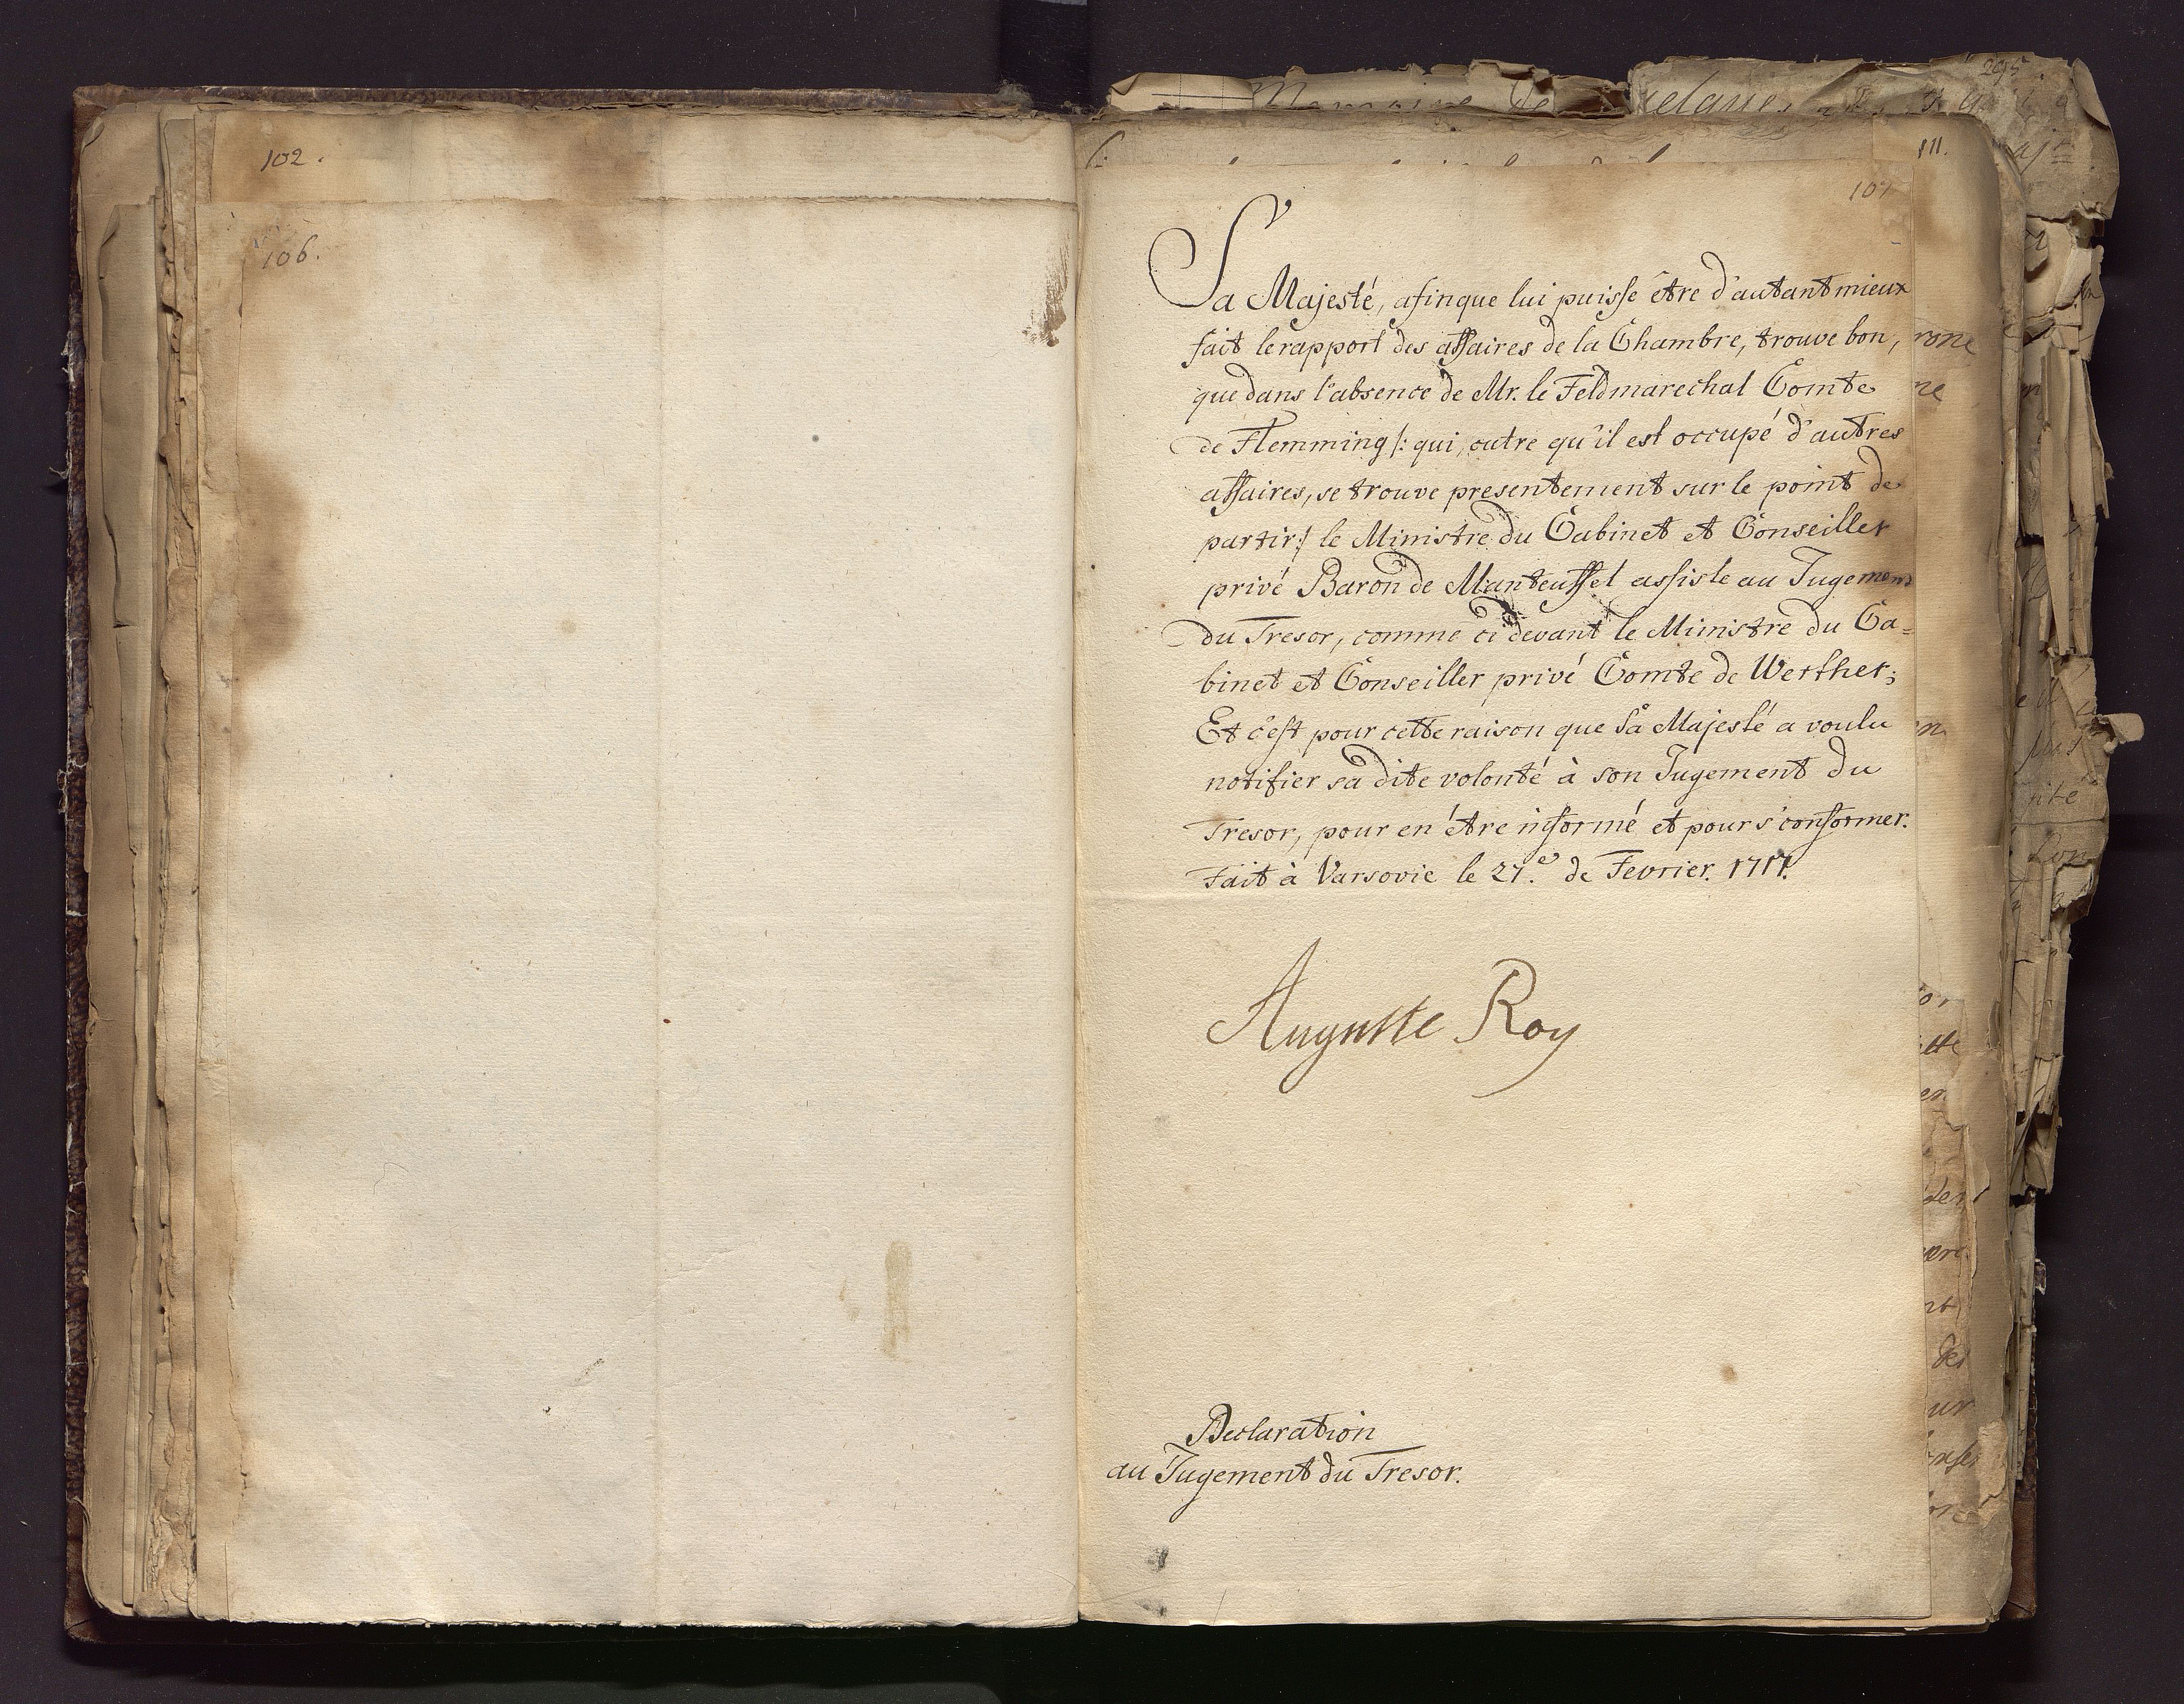 102.
106.
111.
107
Sa Majesté, afinque lui puisse être d'autant mieux
fait le rapport des affaires de la Chambre, trouve bon,
que dans l'absence de Mr. le Feldmarechal Comte
de Flemming /: qui, outre qu'il est occupé d'autres
affaires, se trouve presentement sur le point de
partir :/ le Ministre du Cabinet et Conseiller
privé Baron de Manteuffel assiste au Jugement
du Tresor, comme ci devant le Ministre du Ca=
binet et Conseiller privé Comte de Werther;
Et c'est pour cette raison que Sa Majesté a voulu
notifier sa dite volonté à son Jugement du
Tresor, pour en être informé et pour s'conformer.
Fait à Varsovie le 27.e de Fevrier. 1717.
Auguste Roy
Declaration
au Jugement du Tresor.